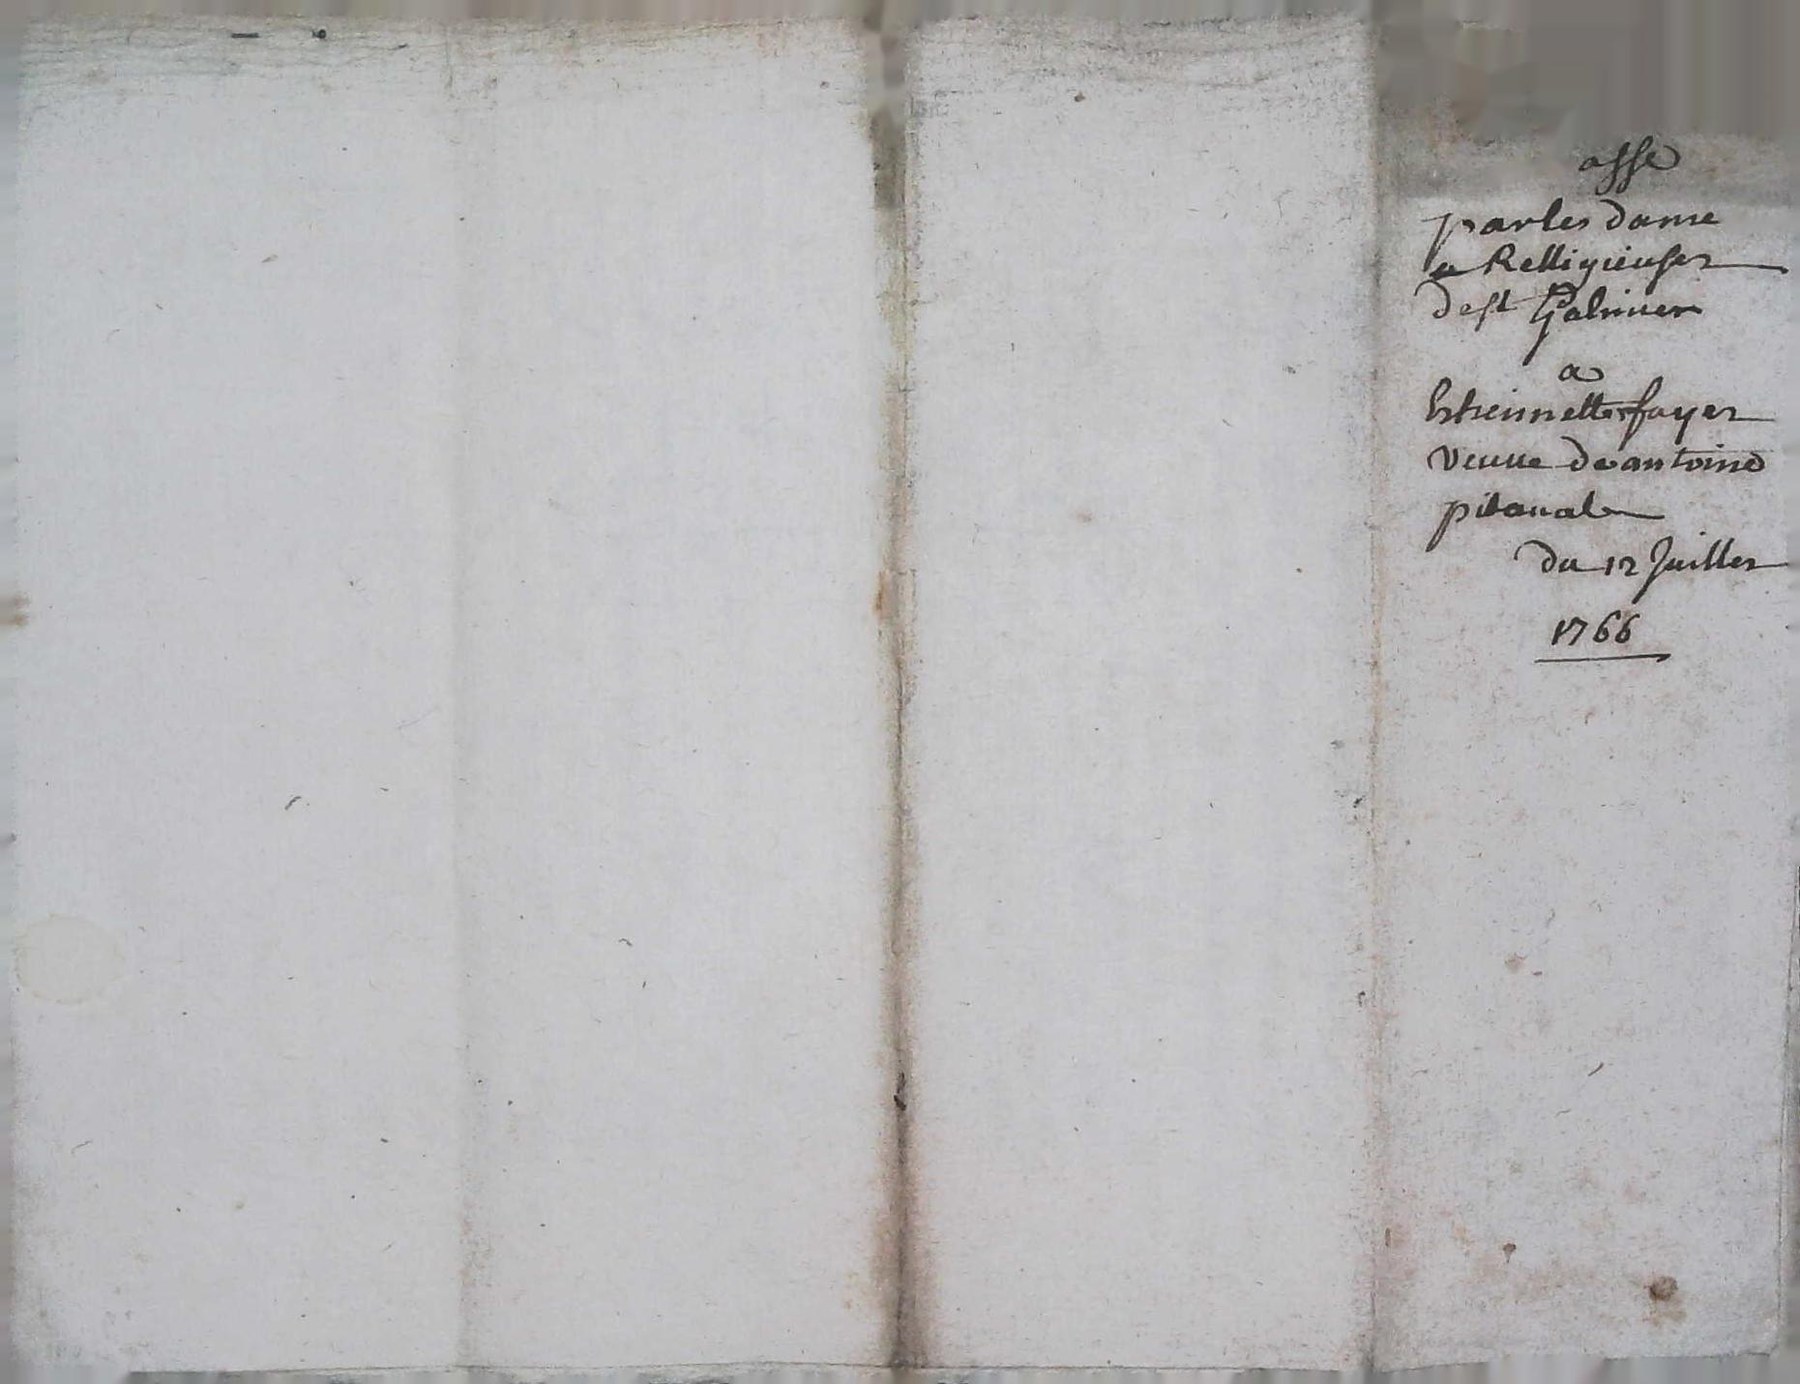 asse
par les dame
et Relligieuses
de st Galmier
a
Estiennette fayer
veuue de antoine
pitaual
du 12 Juillet
1766